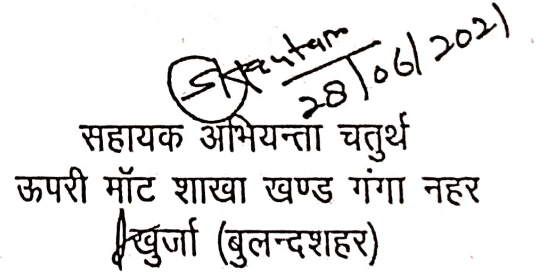 SKGautam
28/06/2021
सहायक अभियन्ता चतुर्थ
ऊपरी मॉट शाखा खण्ड गंगा नहर
खुर्जा (बुलन्दशहर)